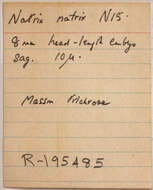 Natrix natrix N15.
8 mm head-length embryo
sag. 10µ.
Masson
R-195485